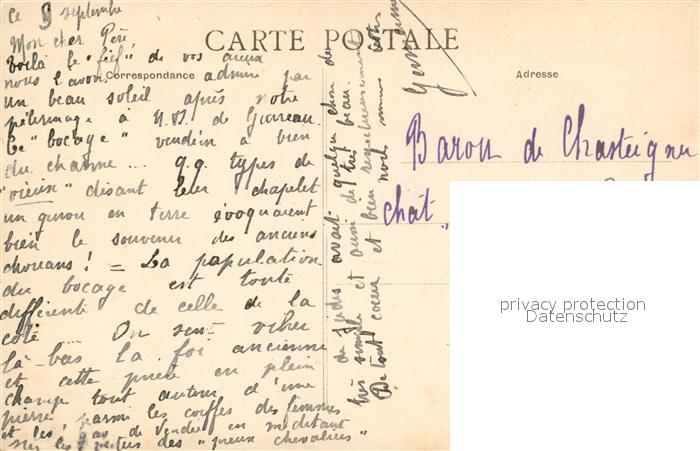 ce 9 septembre
Mon cher Père,
CARTE POSTALE
Correspondance
Adresse
Voilà le "fief" de vos aïeux
nous l'avons admiré par
un beau soleil après notre
pèlerinage à N.D. de
Ce "bocage" vendéen a bien
du charme... q.q. types de
"vieux" disant leur chapelet
un genou en terre évoquaient
bien le souvenir des anciens
chouans! = La population
du bocage est toute
différente de celle de la
côte... On sent vibrer
là-bas la foi ancienne
et cette prière en plein
champ tout autour d'une
pierre, parmi les coiffes des femmes
et les gars de Vendée en méditant
sur les vertus des "preux chevaliers"
de jadis avait quelque chose de
très simple et aussi de très beau.
De tout coeur et bien respectueusement
nous
Germaine
Baron de Chasteigner
chât.
privacy protection
Datenschutz